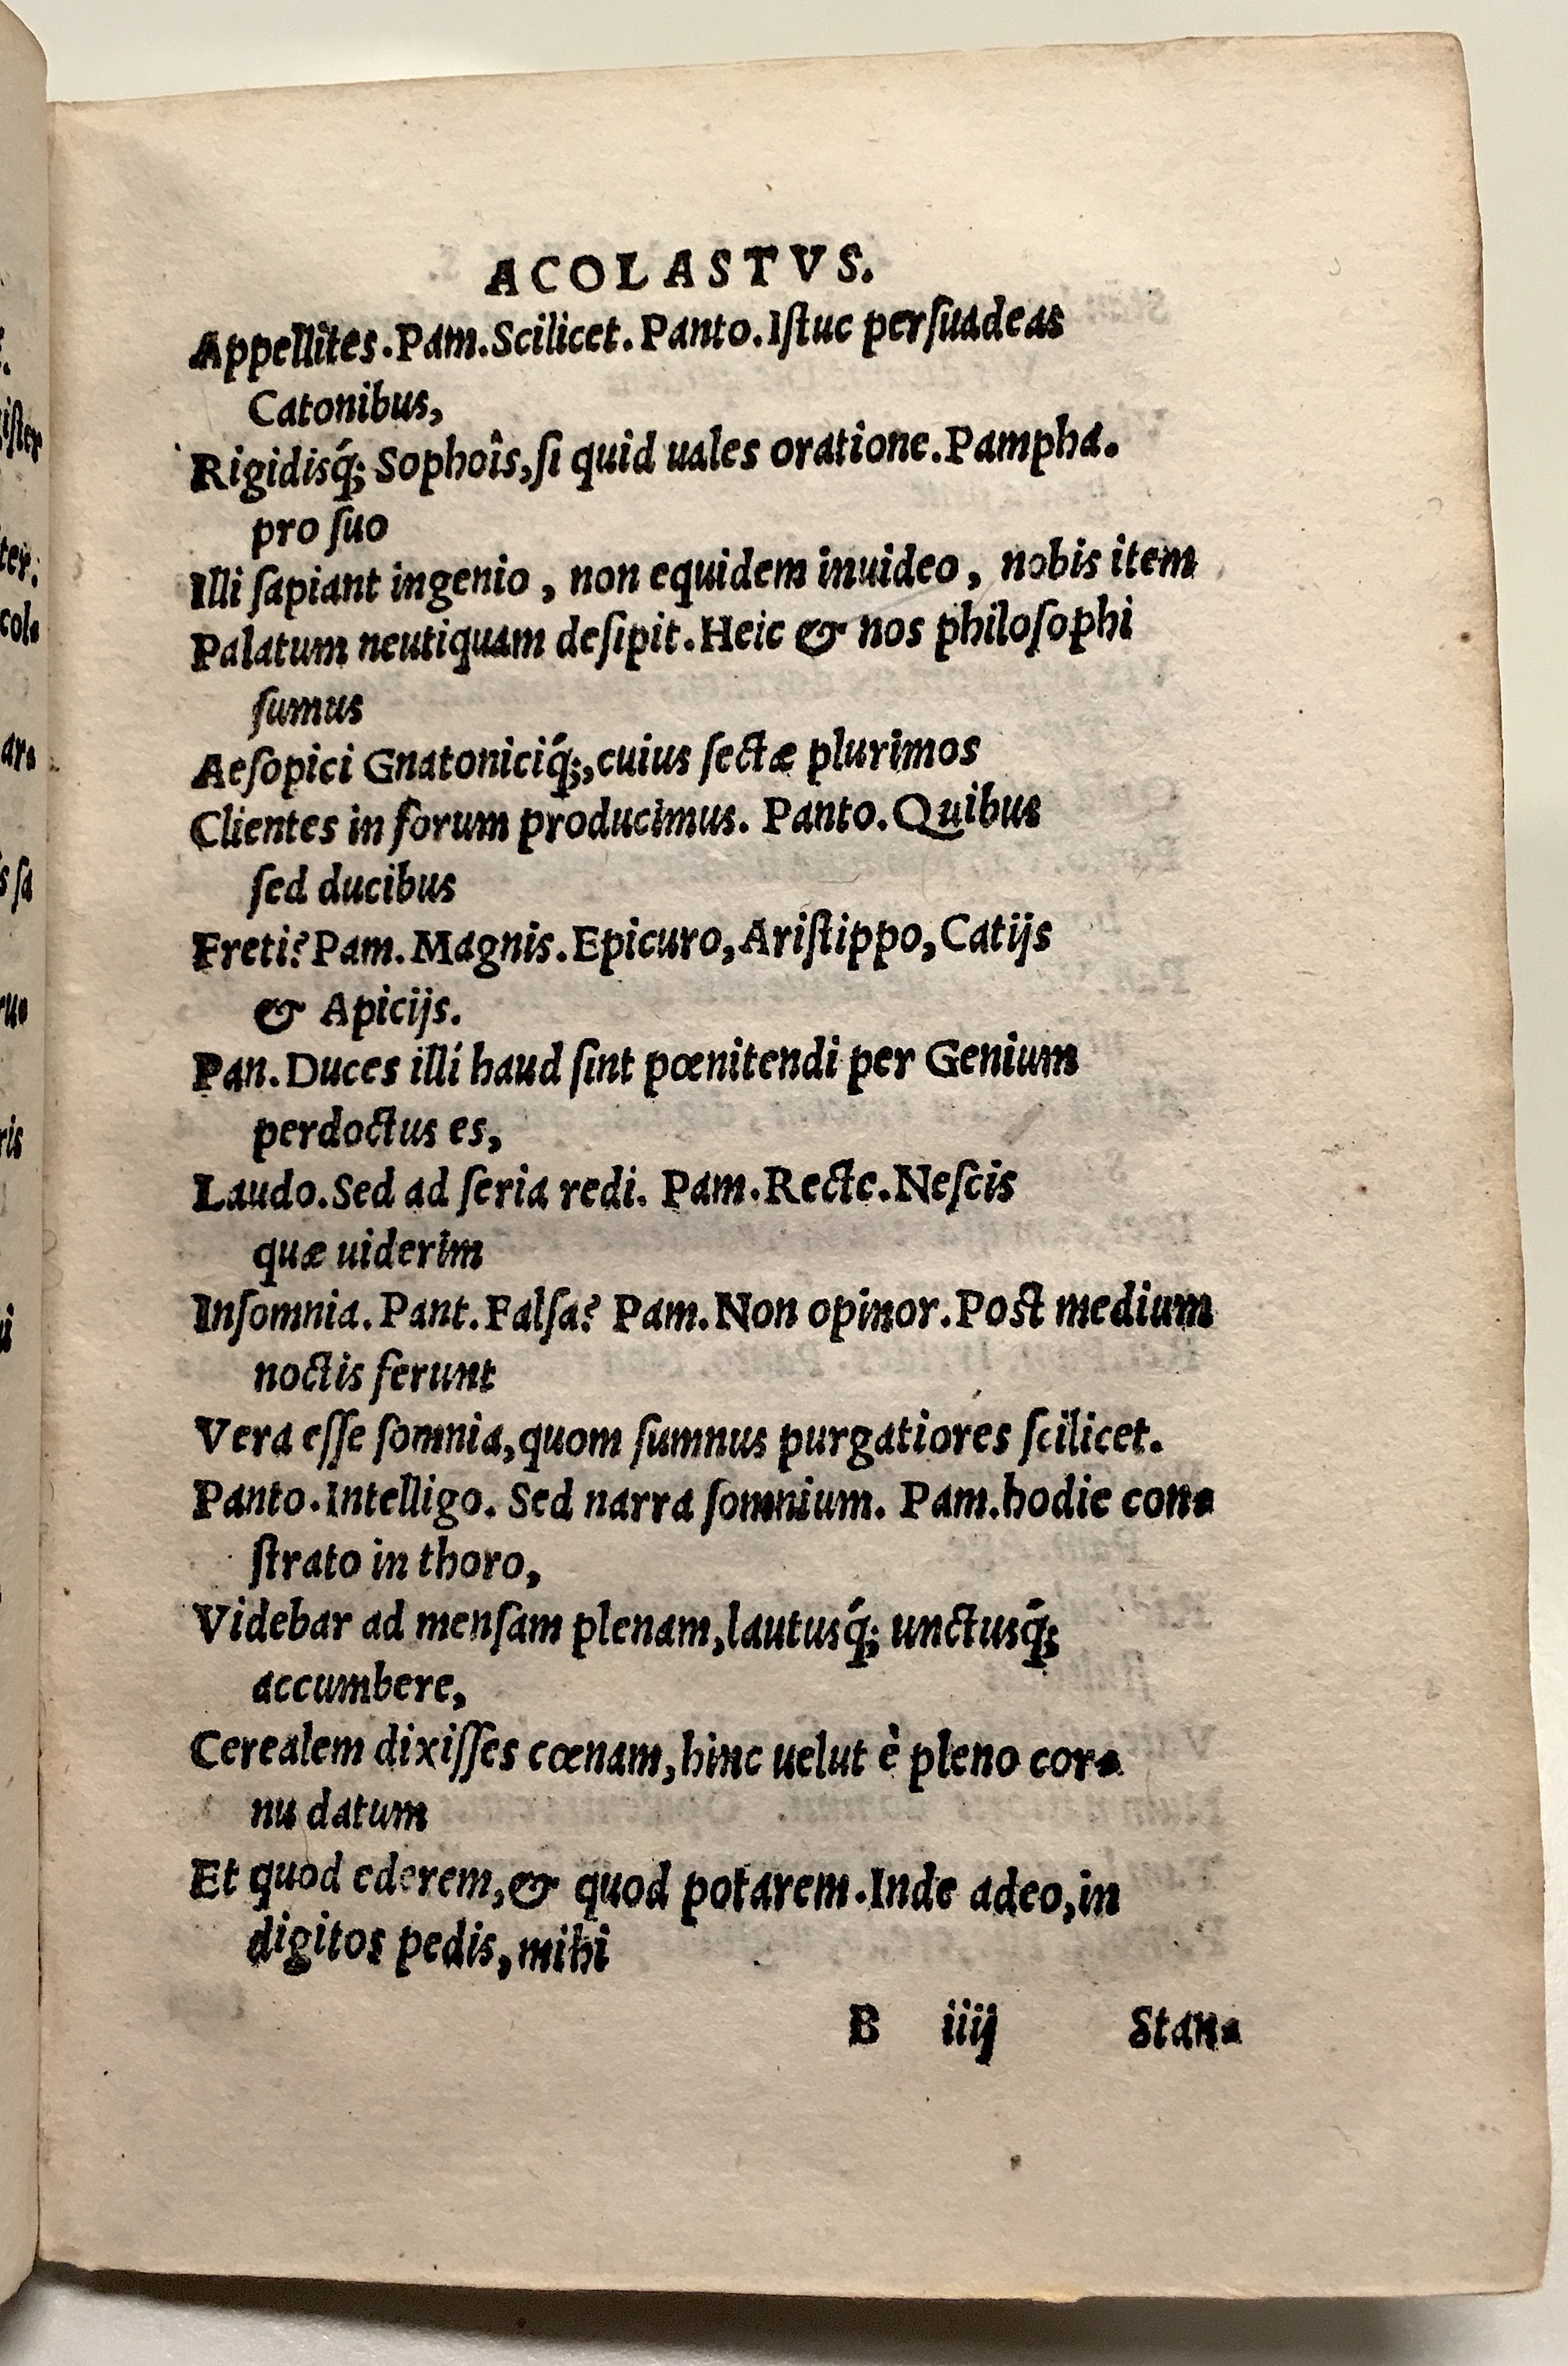 ACOLASTVS.
Appellites.Pam.Scilicet. Panto.Iſtuc perſuadeas
Catonibus,
Rigidisq́; Sophoîs,ſi quid uales oratione.Pampha.
pro ſuo
Illi ſapiant ingenio , non equidem inuideo , nobis item
Palatum neutiquam deſipit.Heic & nos philoſophi
ſumus
Aeſopici Gnatoniciq́;,cuius ſectæ plurimos
Clientes in forum producimus. Panto.Quibus
ſed ducibus
Freti? Pam. Magnis.Epicuro,Ariſtippo,Catijs
& Apicijs.
Pan.Duces illi haud ſint pœnitendi per Genium
perdoctus es,
Laudo.Sed ad ſeria redi. Pam.Recte.Neſcis
quæ uiderim
Inſomnia. Pant.Falſa? Pam.Non opinor.Poſt medium
noctis ferunt
Vera eſſe ſomnia,quom ſumnus purgatiores ſcilicet.
Panto.Intelligo. Sed narra ſomnium. Pam.hodie con-
ſtrato in thoro,
Videbar ad menſam plenam,lautusq́; unctusq́;
accumbere,
Cerealem dixiſſes cœnam,hinc uelut è pleno cor-
nu datum
Et quod ederem,& quod potarem.Inde adeo,in
digitos pedis,mihi
B iiij Stan-